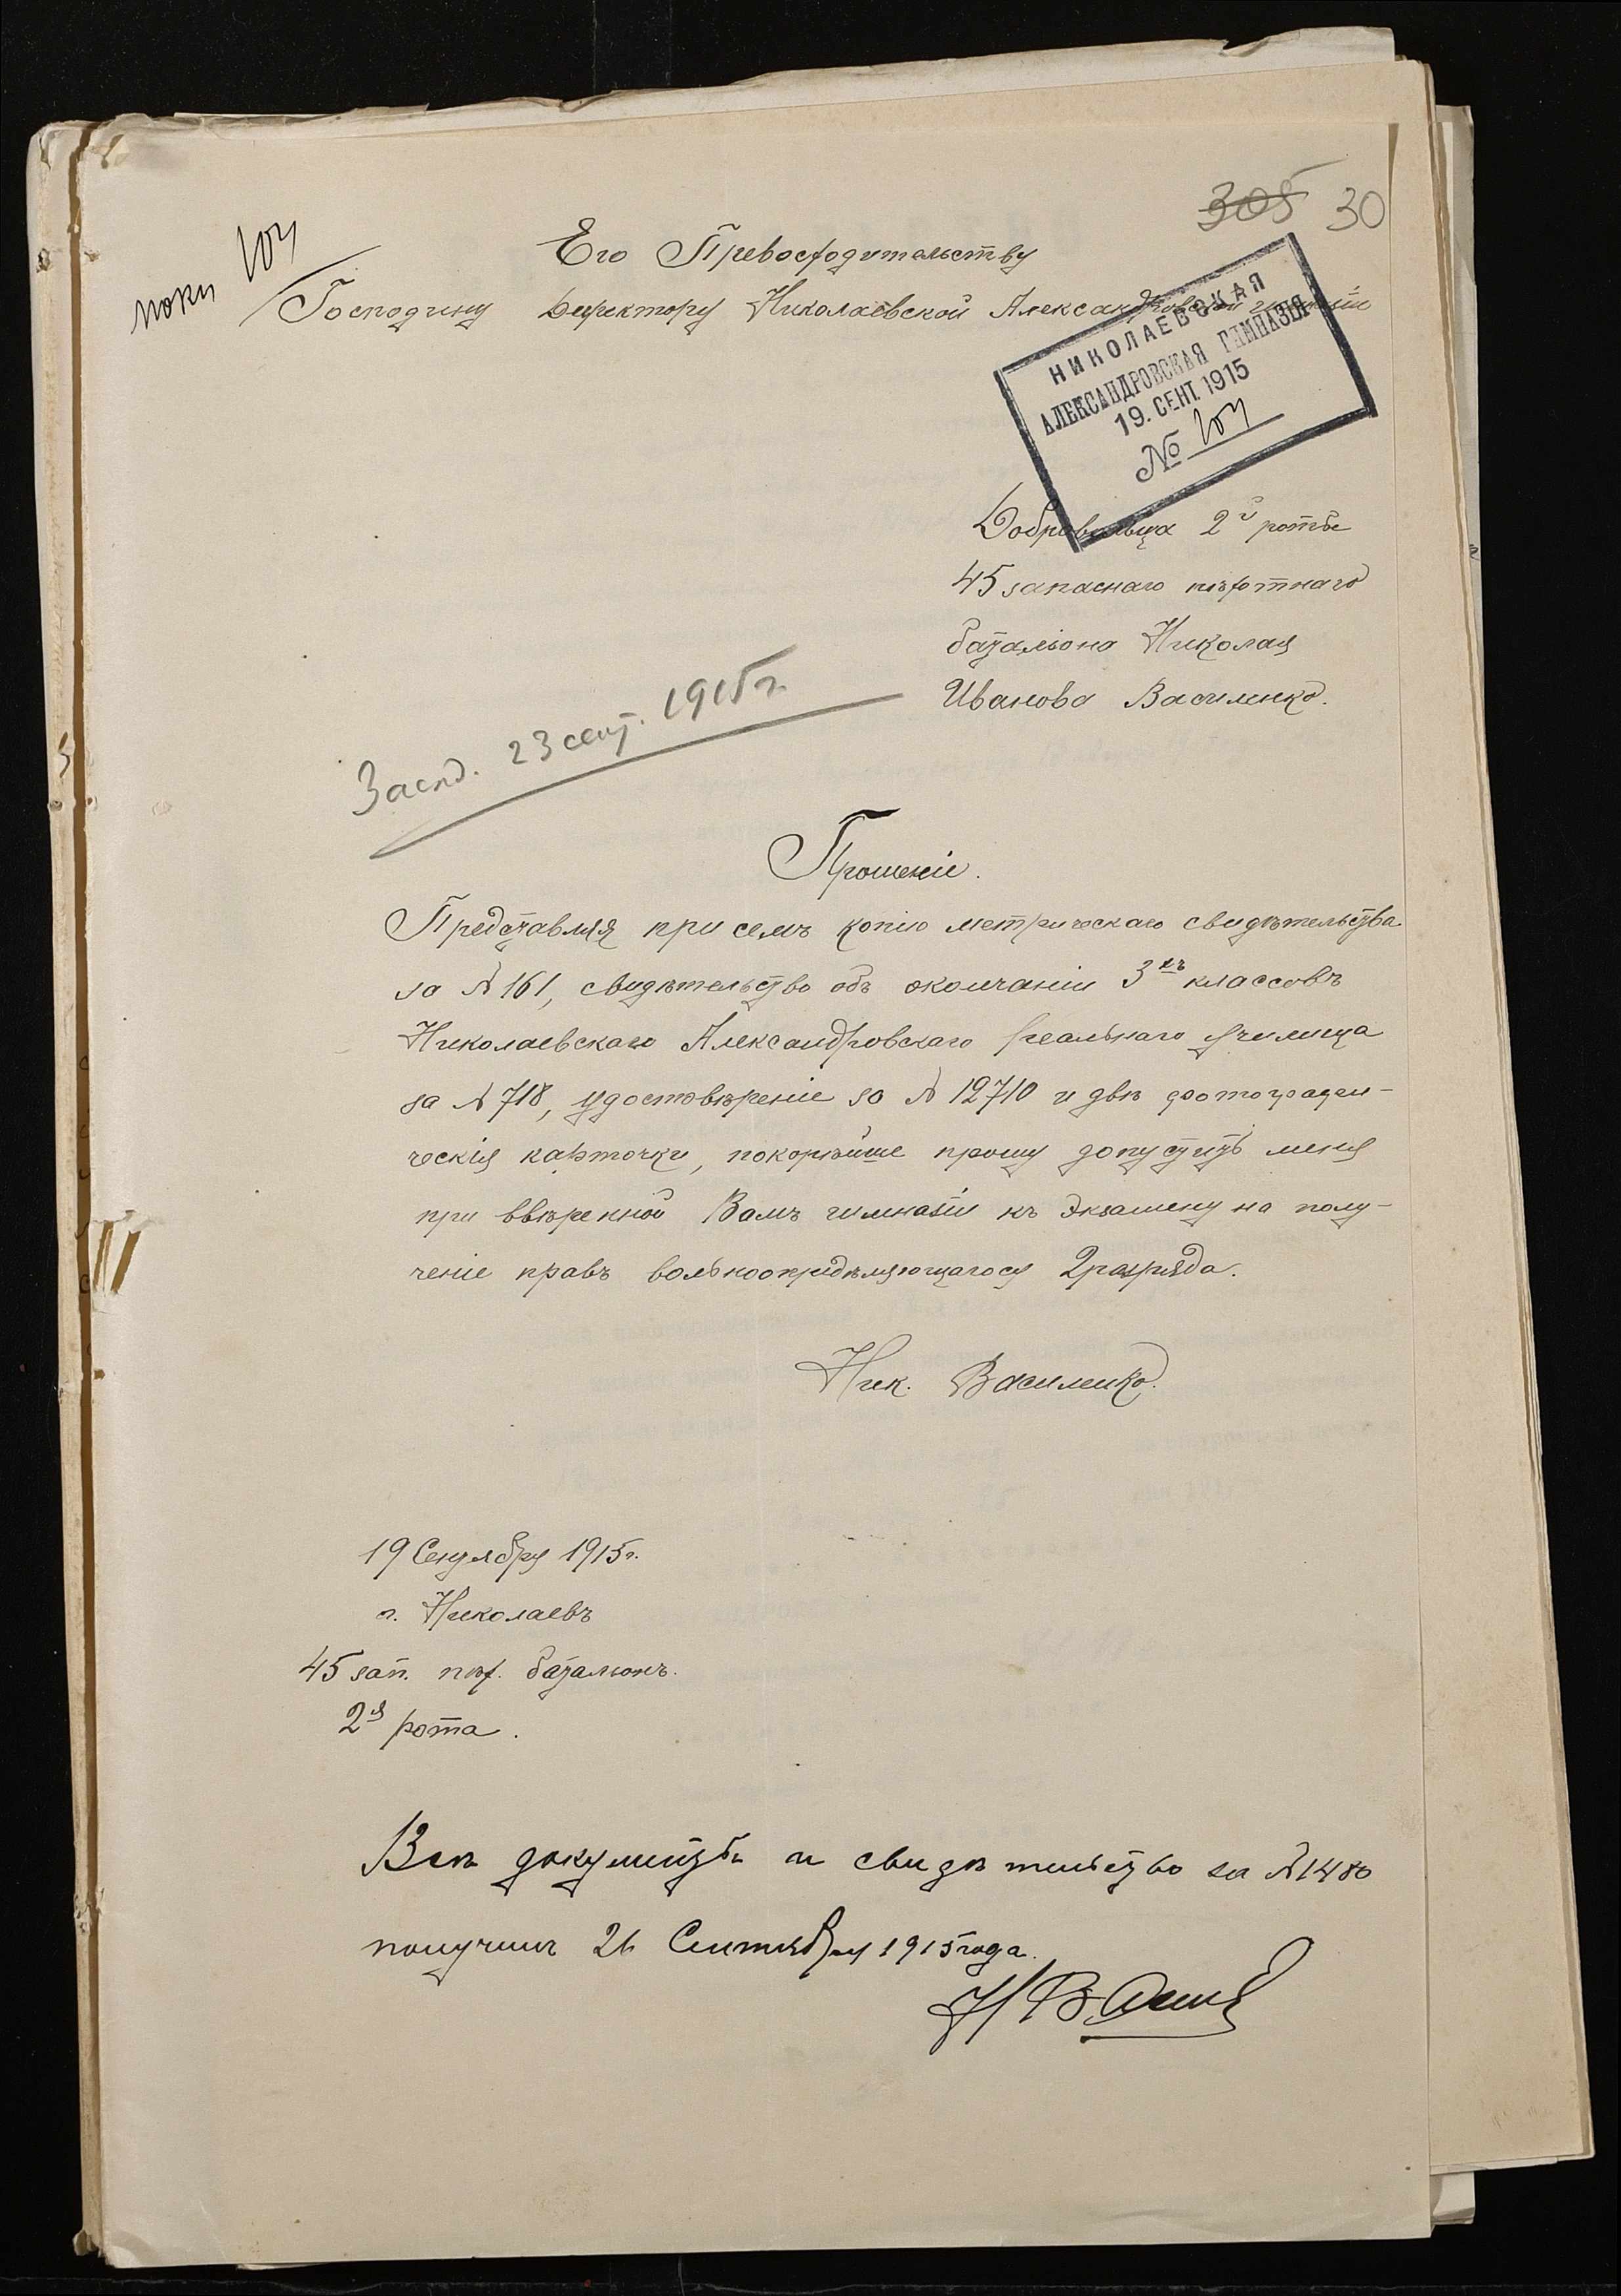 305 30
Его Превосходительству
Господину Директору Николаевской Александровской гимназіи
НИКОЛАЕВСКАЯ
АЛЕКСАНДРОВСКАЯ ГИМНАЗІЯ
19. СЕНТ. 1915
№
Добровольца 2й роты
45 запаснаго пѣхотнаго
баталіона Николая
Иванова Василенко.
23 сент. 1915 г.
Прошеніе.
Представляя при семъ копію метрическаго свидѣтельства
за № 161, свидѣтельство объ окончаніи 3хъ классовъ
Николаевскаго Александровскаго реальнаго училища
за № 718, удостовѣреніе за № 12710 и двѣ фотографи-
ческія карточки, покорнѣйше прошу допустить меня
при ввѣренной Вамъ гимназіи къ экзамену на полу-
ченіе правъ вольноопредѣляющагося 2 разряда.
Ник. Василенко.
19 Сентября 1915 г.
г. Николаевъ
45 зап. пѣх. баталіонъ.
2я рота.
Всѣ документы и свидѣтельство за № 1480
получилъ 26 Сентября 1915 года.